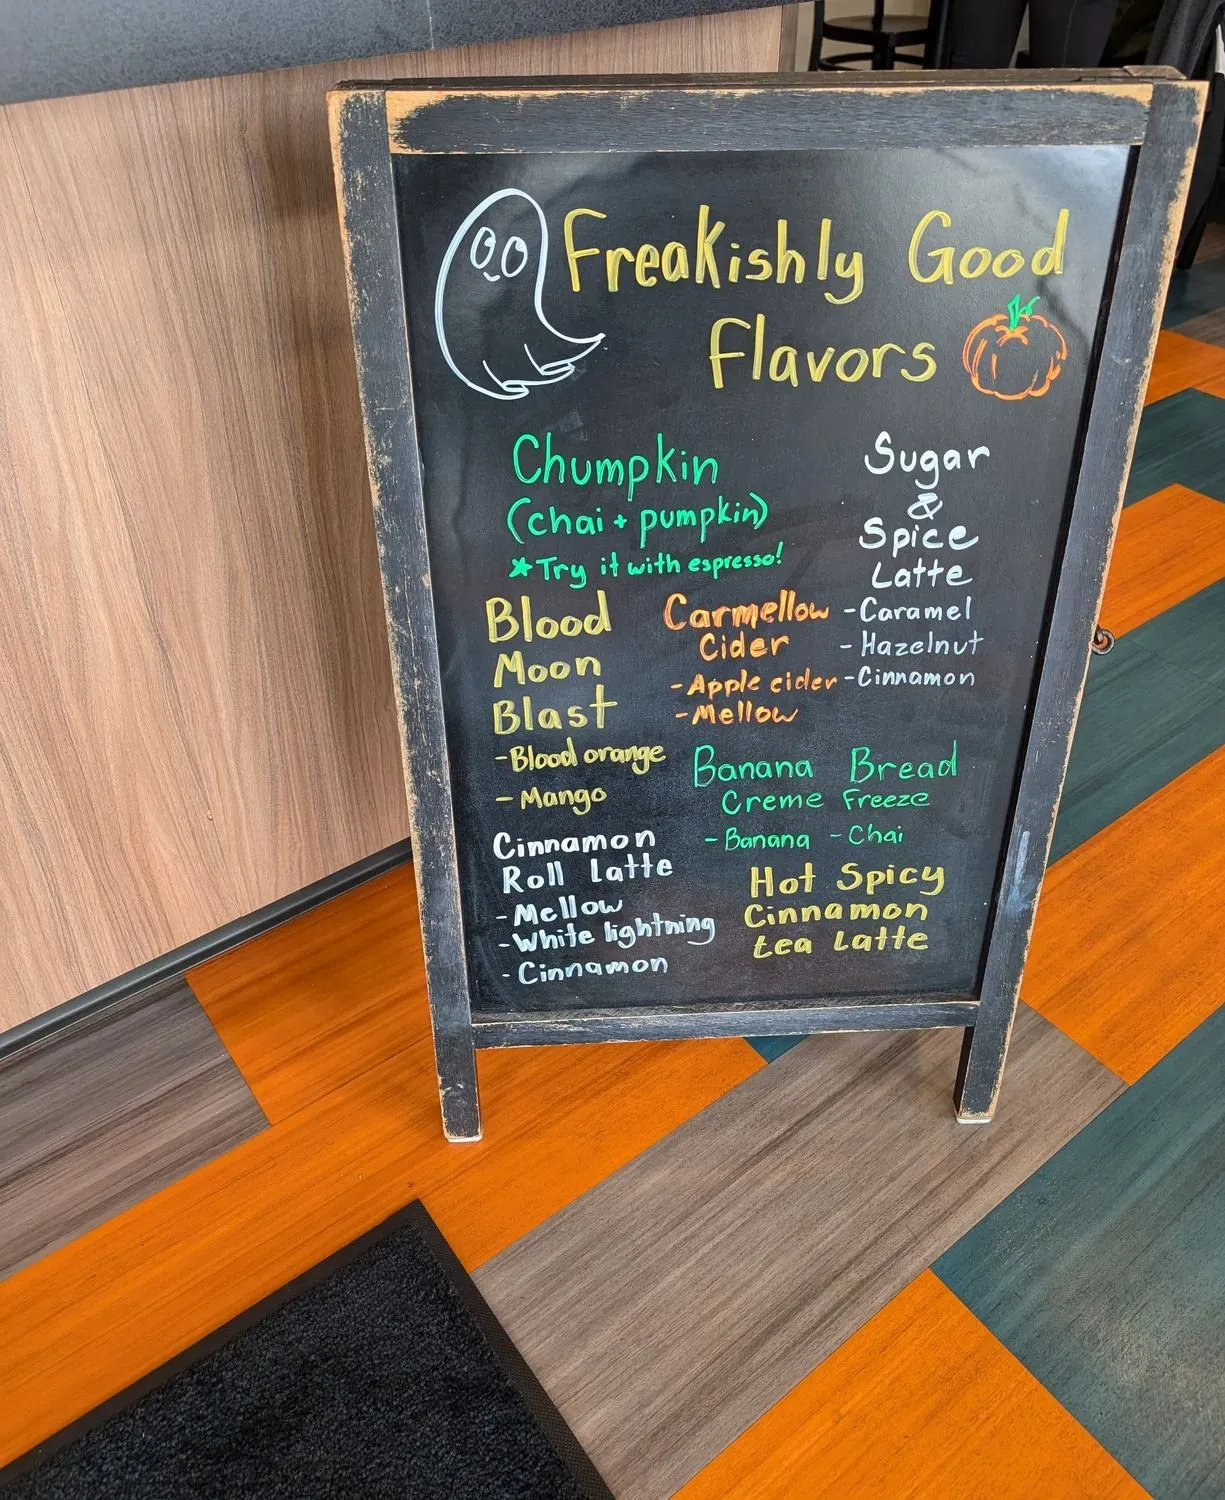 Freakishly Good
Flavors
Chumpkin
(chai + pumpkin)
*Try it with espresso!
Sugar
&
Spice
Latte
-Caramel
-Hazelnut
-Cinnamon
Blood
Moon
Blast
-Blood orange
-Mango
Carmellow
Cider
-Apple cider
-Mellow
Banana Bread
Creme Freeze
-Banana -Chai
Cinnamon
Roll Latte
-Mellow
-White lightning
-Cinnamon
Hot Spicy
Cinnamon
tea Latte